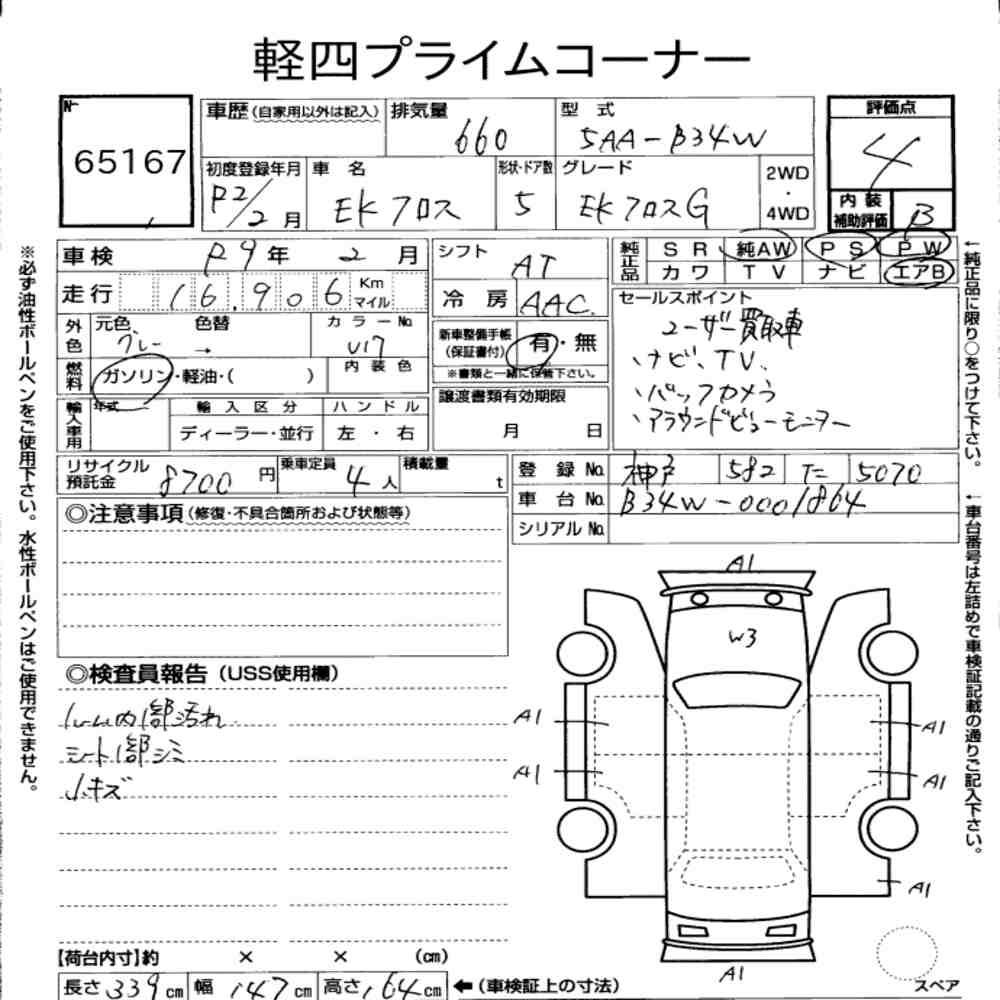 軽四プライムコーナー
No.
65167
車歴 (自家用以外は記入) 排気量 660 型式 5AA-B34W
評価点 4
初度登録年月 R2/2月 車名 EKクロス 形状・ドア数 5 グレード EKクロスG 2WD・4WD
内装補助評価 B
車検 R9年 2月 シフト AT
純正品 SR 純AW PS PW
カワ TV ナビ エアB
走行 16,906 Km マイル
冷房 AAC
セールスポイント
ユーザー買取車
・ナビ、TV.
・バックカメラ
・アラウンドビューモニター
外色 元色 グレー → 色替 カラーNo. U17
新車整備手帳 (保証書付) 有・無
※書類と一緒に保管下さい。
燃料 ガソリン・軽油・( ) 内装色
輸入車用 年式 輸入区分 ハンドル
ディーラー・並行 左・右
譲渡書類有効期限
月 日
リサイクル預託金 8700円 乗車定員 4人 積載量 t
登録No. 神戸 582 た 5070
車台No. B34W-0001864
シリアルNo.
◎注意事項 (修復・不具合箇所および状態等)
◎検査員報告 (USS使用欄)
ルーム内1部汚れ
シート1部シミ
小キズ
A1
W3
A1
A1
A1
A1
A1
A1
スペア
【荷台内寸】約 × × (cm)
長さ 339cm 幅 147cm 高さ 164cm ←(車検証上の寸法)
※必ず油性ボールペンをご使用下さい。水性ボールペンはご使用できません。
←純正品に限り○をつけて下さい。
←車台番号は左詰めで車検証記載の通りご記入下さい。